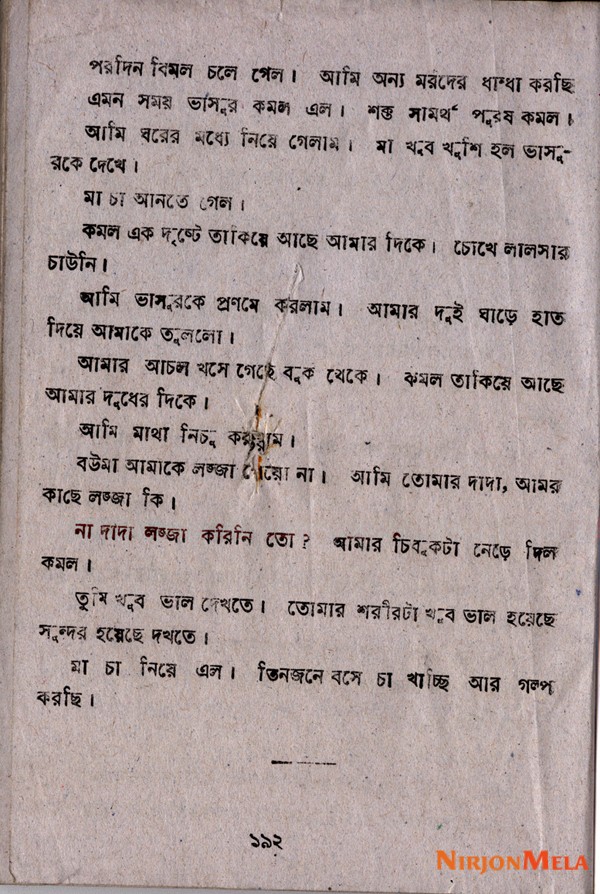 পরদিন বিমল চলে গেল। আমি অন্য মরদের ধান্ধা করছি
এমন সময় ভাসুর কমল এল। শক্ত সামর্থ পুরুষ কমল।
আমি ঘরের মধ্যে নিয়ে গেলাম। মা খুব খুশি হল ভাসু-
রকে দেখে।
মা চা আনতে গেল।
কমল এক দৃষ্টে তাকিয়ে আছে আমার দিকে। চোখে লালসার
চাউনি।
আমি ভাসুরকে প্রণমে করলাম। আমার দুই ঘাড়ে হাত
দিয়ে আমাকে তুললো।
আমার আচল খসে গেছে বুক থেকে। কমল তাকিয়ে আছে
আমার দুধের দিকে।
আমি মাথা নিচু করলাম।
বউমা আমাকে লজ্জা পেয়ো না। আমি তোমার দাদা, আমর
কাছে লজ্জা কি।
না দাদা লজ্জা করিনি তো? আমার চিবুকটা নেড়ে দিল
কমল।
তুমি খুব ভাল দেখতে। তোমার শরীরটা খুব ভাল হয়েছে
সুন্দর হয়েছে দখতে।
মা চা নিয়ে এল। তিনজনে বসে চা খাচ্ছি আর গল্প
করছি।
১৯২
NIRJONMELA